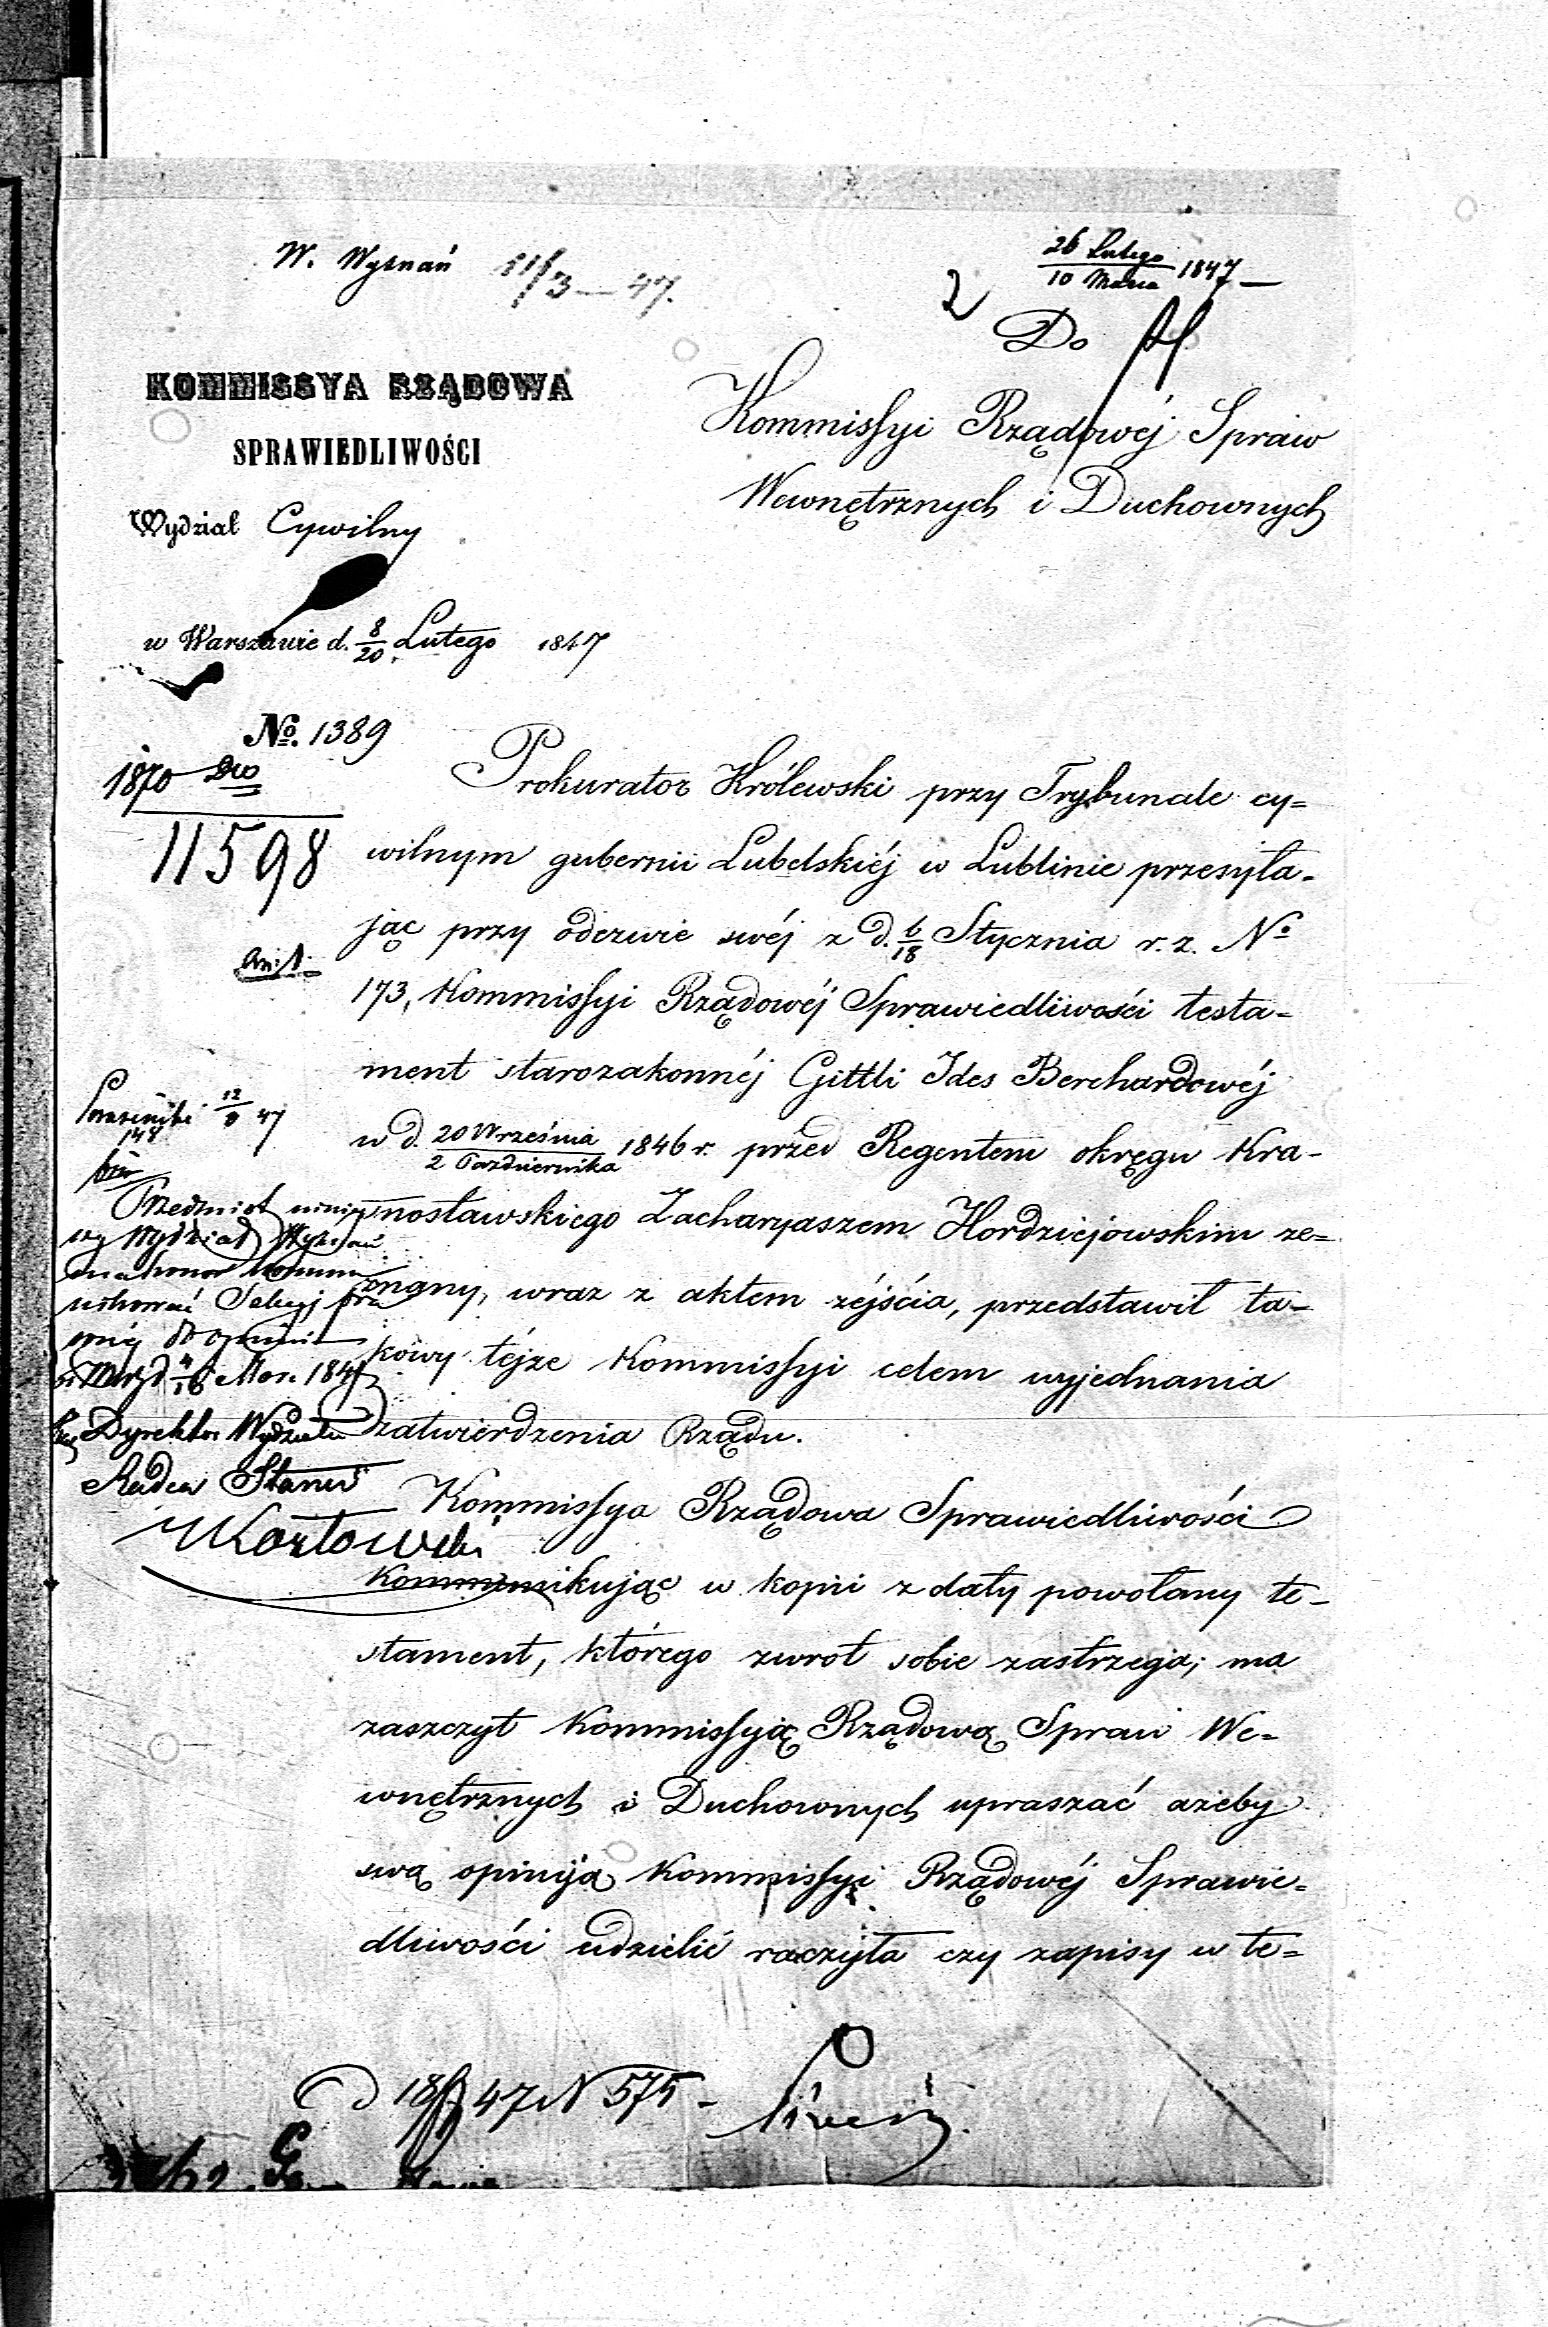 W. Wyznań 11/3 — 47.
26 Lutego
10 Marca 1847 —
2
Do
Kommissyi Rządowéj Spraw
Wewnętrznych i Duchownych
KOMMISSYA RZĄDOWA
SPRAWIEDLIWOŚCI
Wydział Cywilny
w Warszawie d. 8/20 Lutego 1847
No. 1389
1870
11598
Prokurator Królewski przy Trybunale cy=
wilnym gubernii Lubelskiéj w Lublinie przesyła-
jąc przy odezwie swéj z d. 6/18 Stycznia r. z. No
173, Kommissyi Rządowéj Sprawiedliwości testa-
ment starozakonnéj Gittli Ides Berchardowéj
w d. 20 Września / 2 Października 1846 r. przed Regentem okręgu Kra-
snostawskiego Zacharyaszem Hordziejowskim ze=
znany, wraz z aktem zéjścia, przedstawił ta-
kowy téjże Kommissyi celem wyjednania
zatwierdzenia Rządu.
Kommissya Rządowa Sprawiedliwości
kommunikując w kopii z daty powołany te-
stament, którego zwrot sobie zastrzega; ma
zaszczyt Kommissyią Rządową Spraw We-
wnętrznych i Duchownych upraszać ażeby
swą opiniją Kommissyi Rządowéj Sprawie-
dliwości udzielić raczyła czy zapisy w te=
12/3 47
148
Przedmiot
Wydział Wyznań
4/16 Mar. 1847
Dyrektor Wydziału
Radca Stanu
Kozłowski
47 N 575 -